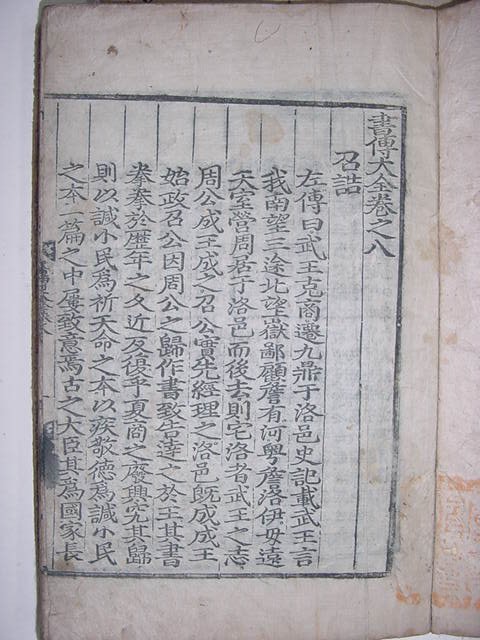 書傳大全卷之八
召誥
左傳曰武王克商遷九鼎于洛邑史記載武王言
我南望三途北望嶽鄙顧詹有河粤詹洛伊毋遠
天室營周居于洛邑而後去則宅洛者武王之志
周公成王成之召公實先經理之洛邑旣成成王
始政召公因周公之歸作書致告達之於王其書
拳拳於歷年之久近反復乎夏商之廢興究其歸
則以諴小民爲祈天命之本以疾敬德爲諴小民
之本一篇之中屢致意焉古之大臣其爲國家長